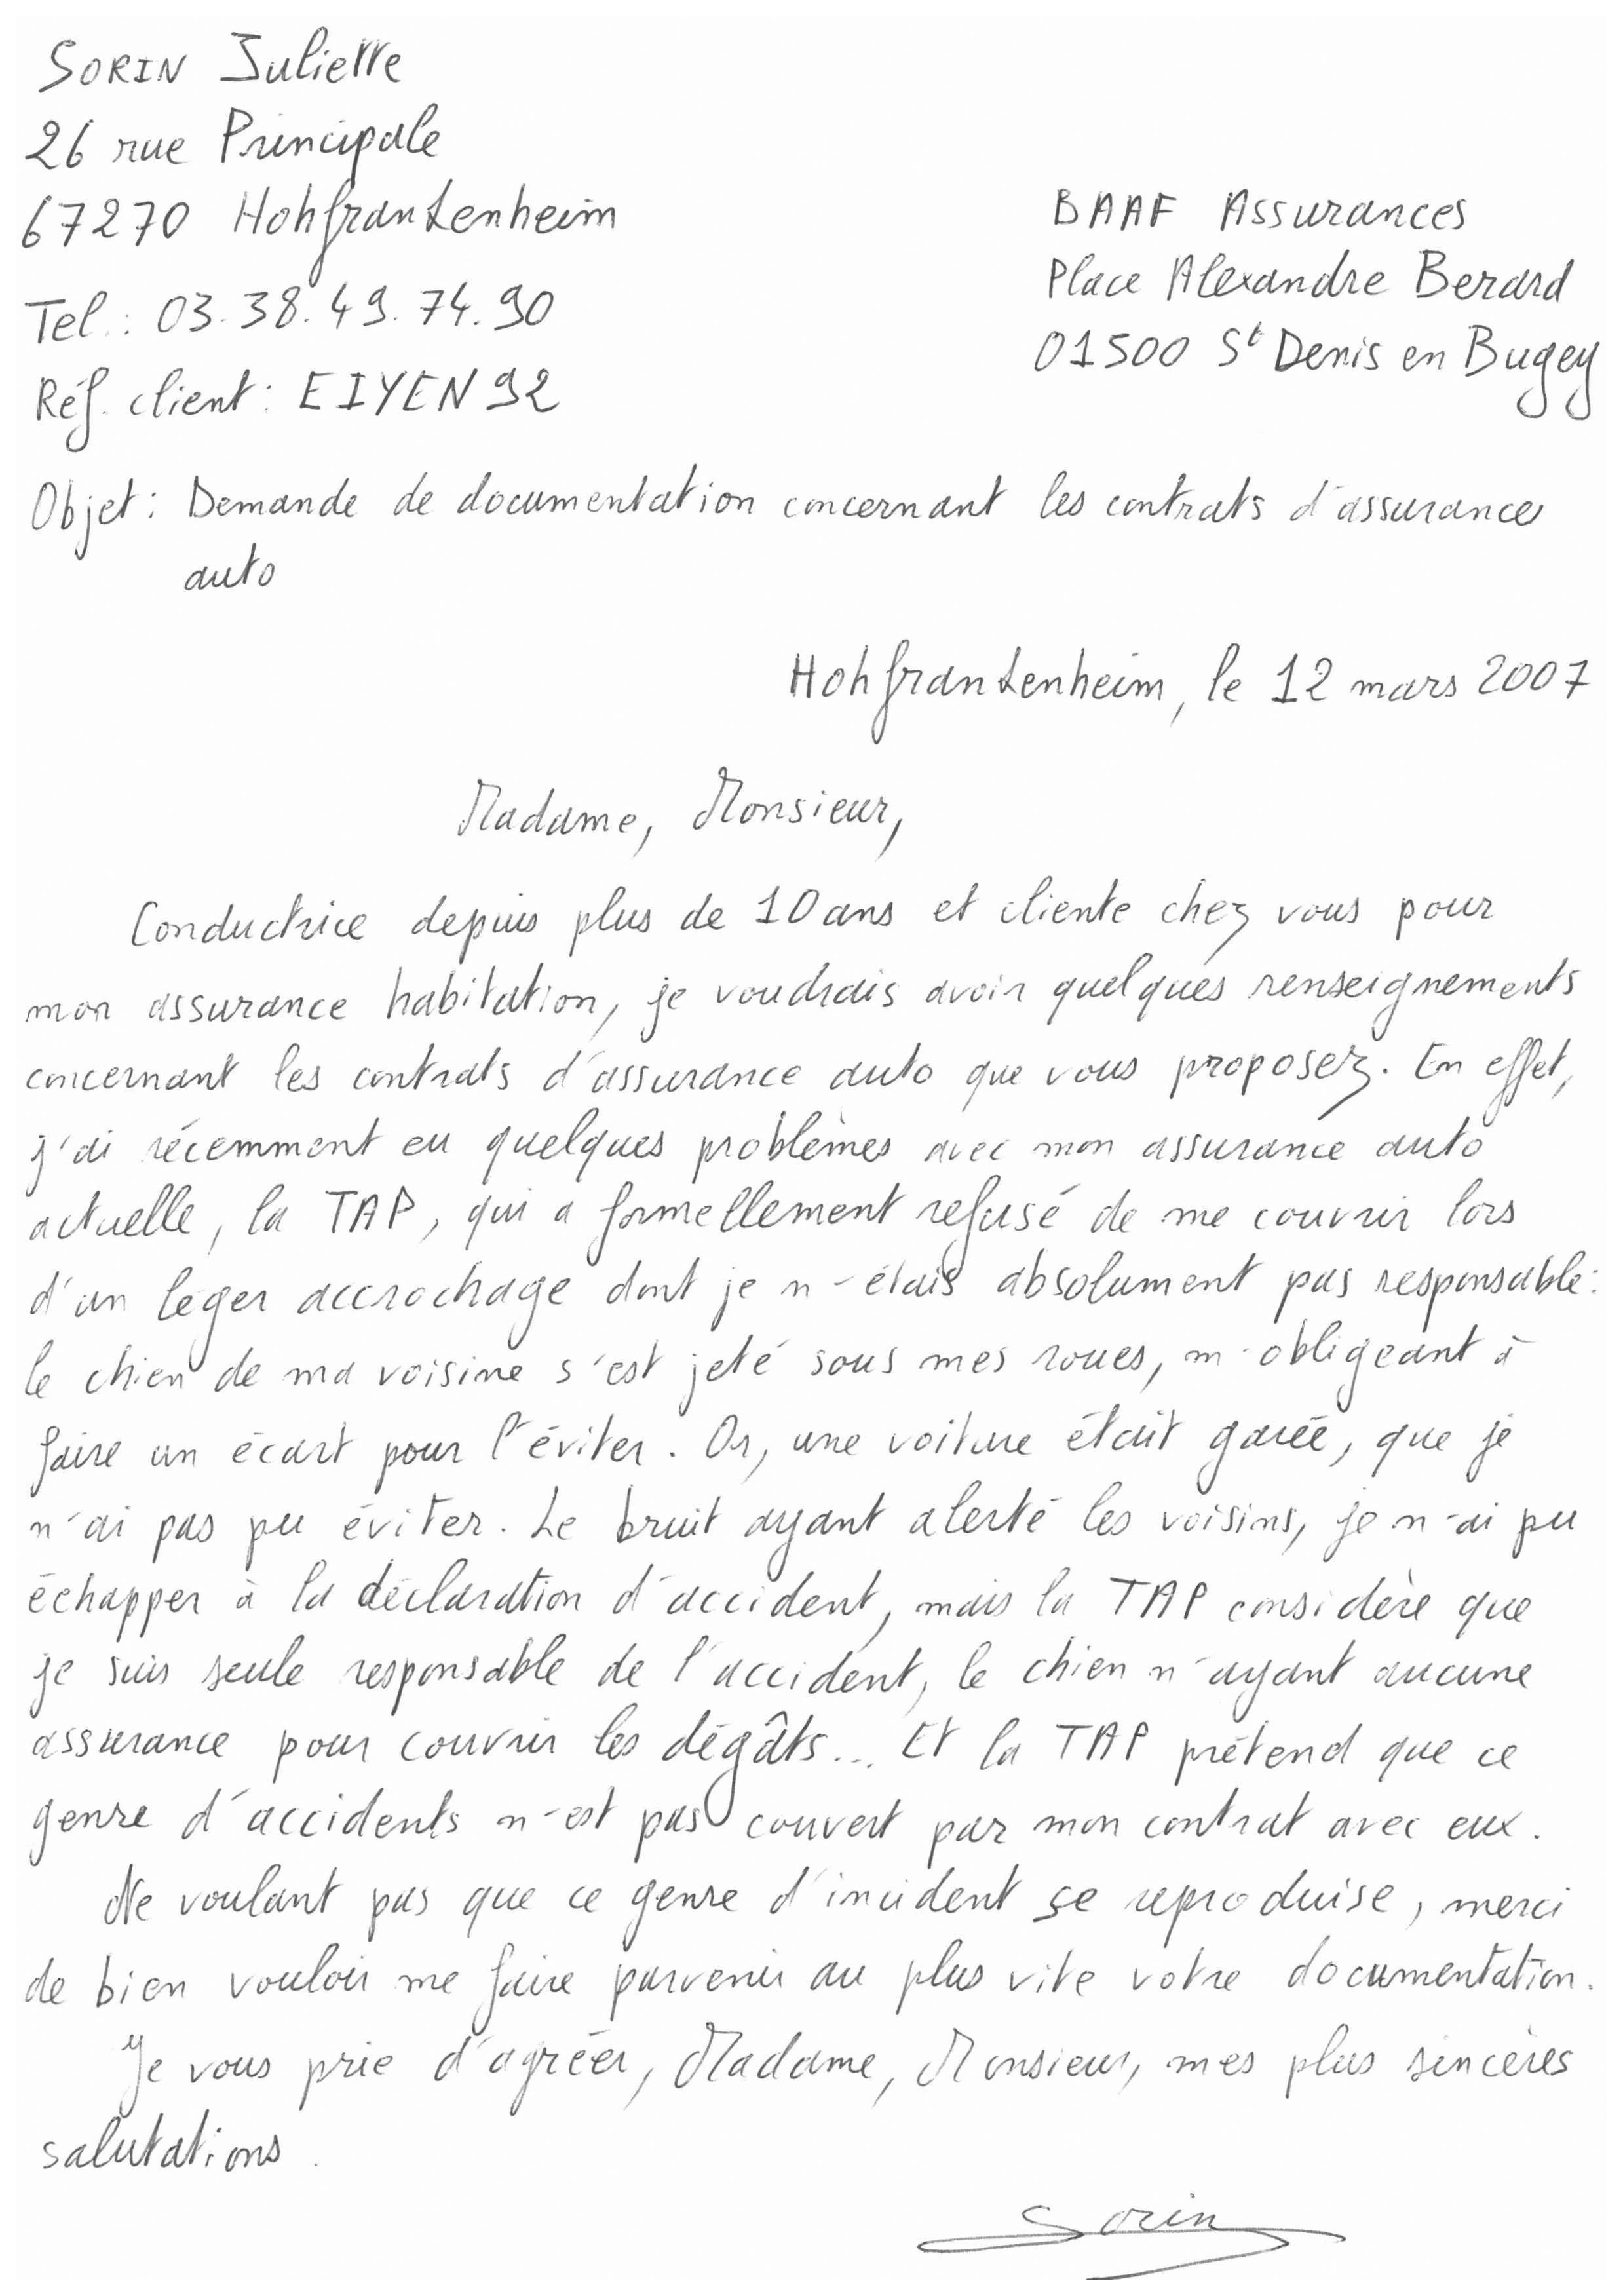 SORIN Juliette
26 rue Principale
67270 Hohfrankenheim
Tel.: 03.38.49.74.90
Réf. client: EIYEN92
BAAF Assurances
Place Alexandre Berard
01500 St Denis en Bugey
Objet: Demande de documentation concernant les contrats d'assurance
auto
Hohfrankenheim, le 12 mars 2007
Madame, Monsieur,
Conductrice depuis plus de 10 ans et cliente chez vous pour
mon assurance habitation, je voudrais avoir quelques renseignements
concernant les contrats d'assurance auto que vous proposez. En effet,
j'ai récemment eu quelques problèmes avec mon assurance auto
actuelle, la TAP, qui a formellement refusé de me couvrir lors
d'un léger accrochage dont je n'étais absolument pas responsable:
le chien de ma voisine s'est jeté sous mes roues, m'obligeant à
faire un écart pour l'éviter. Or, une voiture était garée, que je
n'ai pas pu éviter. Le bruit ayant alerté les voisins, je n'ai pu
échapper à la déclaration d'accident, mais la TAP considère que
je suis seule responsable de l'accident, le chien n'ayant aucune
assurance pour couvrir les dégâts... Et la TAP prétend que ce
genre d'accidents n'est pas couvert par mon contrat avec eux.
Ne voulant pas que ce genre d'incident se reproduise, merci
de bien vouloir me faire parvenir au plus vite votre documentation.
Je vous prie d'agréer, Madame, Monsieur, mes plus sincères
salutations.
Sorin